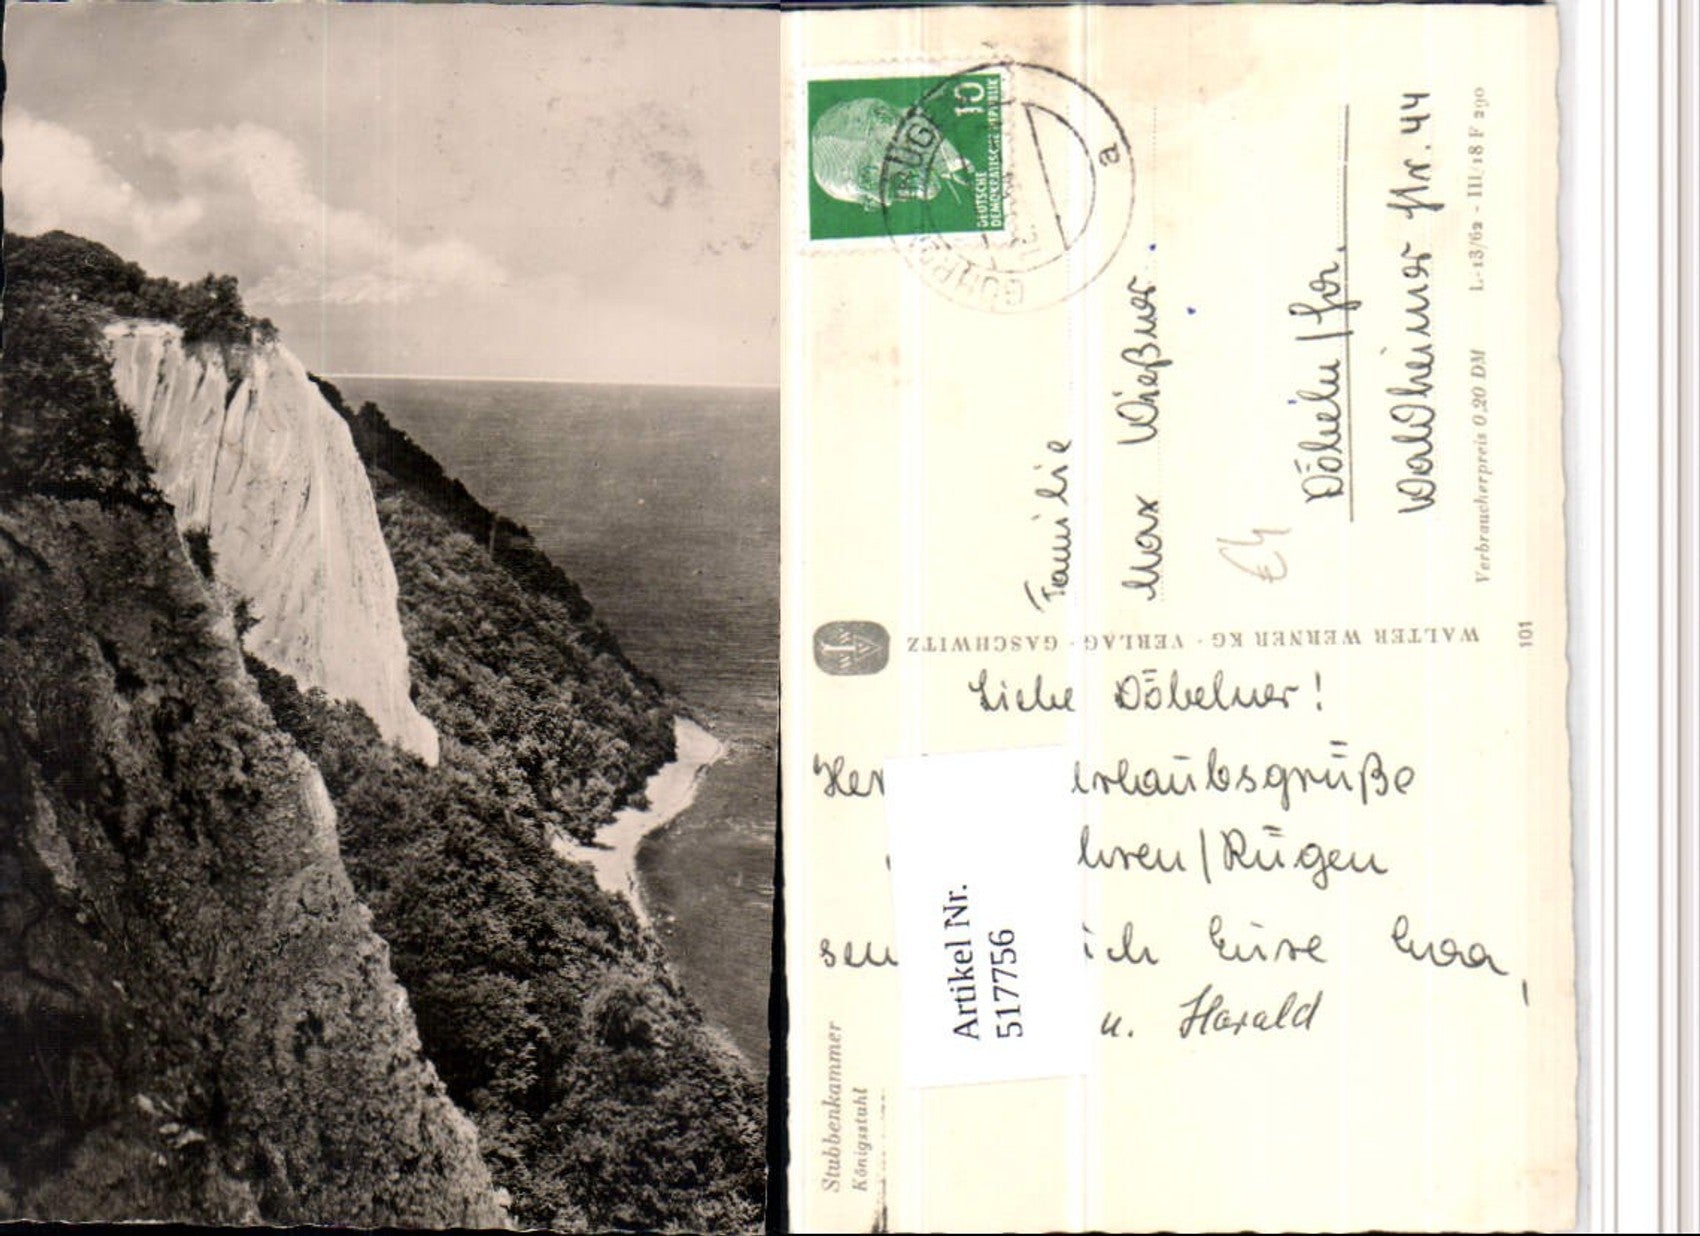 Stubbenkammer
Königsstuhl
10
DEUTSCHE
DEMOKRATISCHE REPUBLIK
a
WALTER WERNER KG · VERLAG · GASCHWITZ
Familie
Max Wießner
Döbeln/Sa.
Waldheimer Str. 44
Verbraucherpreis 0,20 DM L.-13/62 - III/18 F 290
101
Liebe Döbelner!
Her rlaubsgrüße
hren/Rügen
sen ich Eure
u. Harald
Artikel Nr.
517756